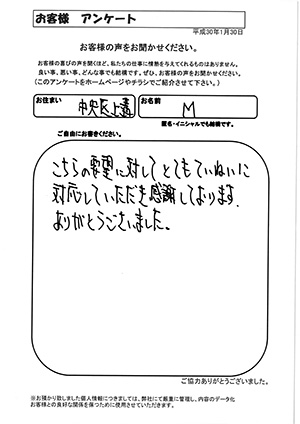 お客様 アンケート
平成30年1月30日
お客様の声をお聞かせください。
お客様の喜びの声を聞くほど、私たちの仕事に情熱を与えてくれるものはありません。
良い事、悪い事、どんな事でも結構です。ぜひ、お客様の声をお聞かせください。
(このアンケートをホームページやチラシでご紹介させて下さい。)
お住まい 中央区上溝 お名前 M
匿名・イニシャルでも結構です。
ご自由にお書きください。
こちらの要望に対してとてもていねいに
対応していただき感謝しております。
ありがとうございました。
ご協力ありがとうございました。
※お預かり致しました個人情報につきましては、弊社にて厳重に管理し、内容のデータ化
お客様との良好な関係を保つために使用させていただきます。